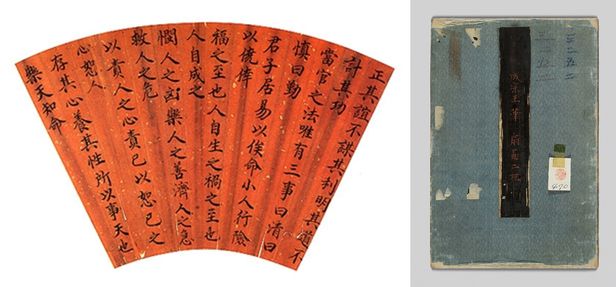 正其誼不謀其利明其道不
計其功
當官之法唯有三事曰清曰
慎曰勤
君子居易以俟命小人行險
以僥倖
福之至也人自生之禍之至也
人自成之
憫人之凶樂人之善濟人之急
救人之危
以責人之心責己以恕己之
心恕人
存其心養其性所以事天也
樂天知命
490